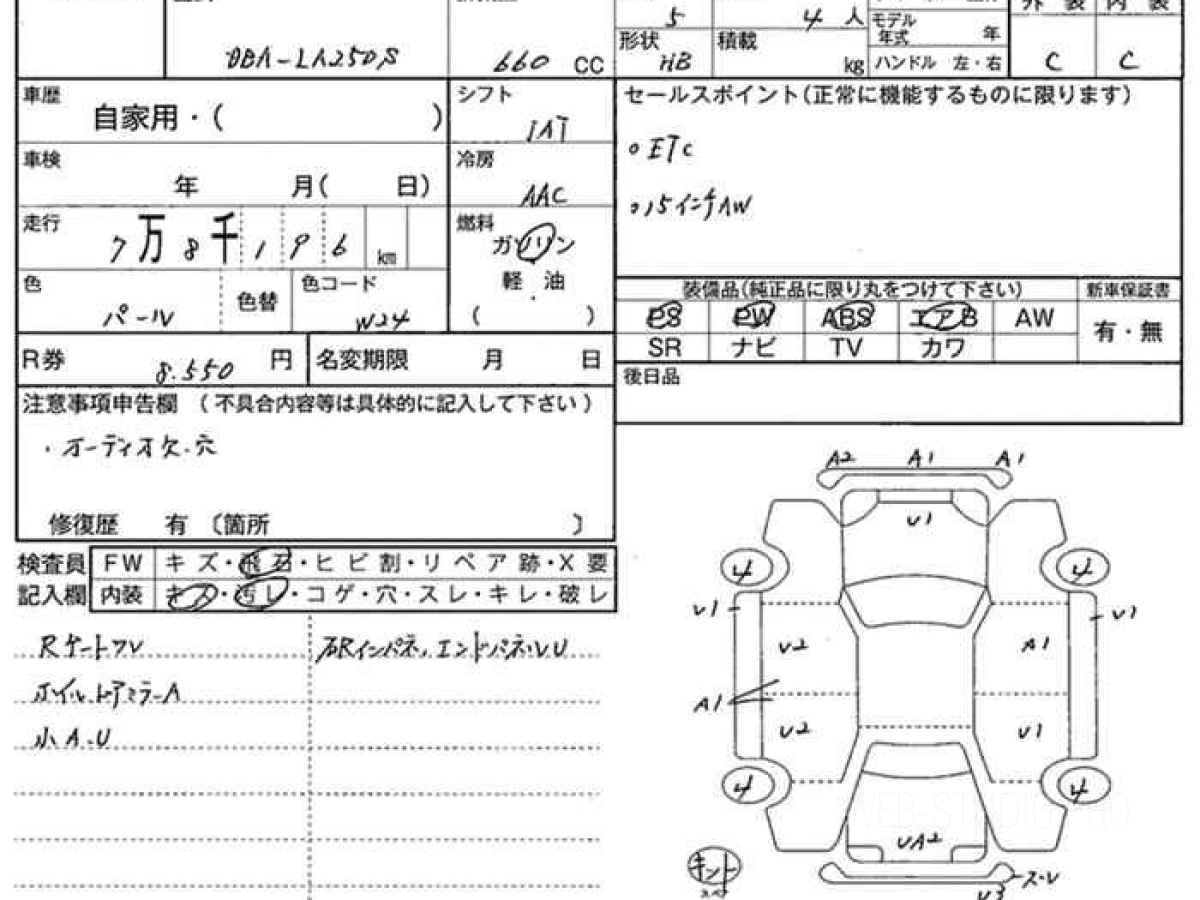 5 4人 モデル年式 年
DBA-LA250S 660 CC 形状 HB 積載 kg ハンドル 左・右 C C
車歴 自家用・( ) シフト IAT
セールスポイント(正常に機能するものに限ります)
。ETC
。15インチAW
車検 年 月( 日) 冷房 AAC
走行 7万8千196km 燃料 ガソリン
軽油
( )
色 パール 色替 色コード W24
装備品(純正品に限り丸をつけて下さい) 新車保証書
PS PW ABS エアB AW 有・無
SR ナビ TV カワ
R券 8.550 円 名変期限 月 日
後日品
注意事項申告欄 (不具合内容等は具体的に記入して下さい)
・オーディオ欠.穴
修復歴 有 〔箇所 〕
検査員 FW キズ・飛石・ヒビ割・リペア跡・X要
記入欄 内装 キズ・汚レ・コゲ・穴・スレ・キレ・破レ
Rゲートフ
ホイル.ドアミラーA
小A.U
A2 A1 A1
U1
4 4
U1 U1
U2 A1
A1
U2 U1
4 4
UA2
U3
WEB-STUDIO.PRO